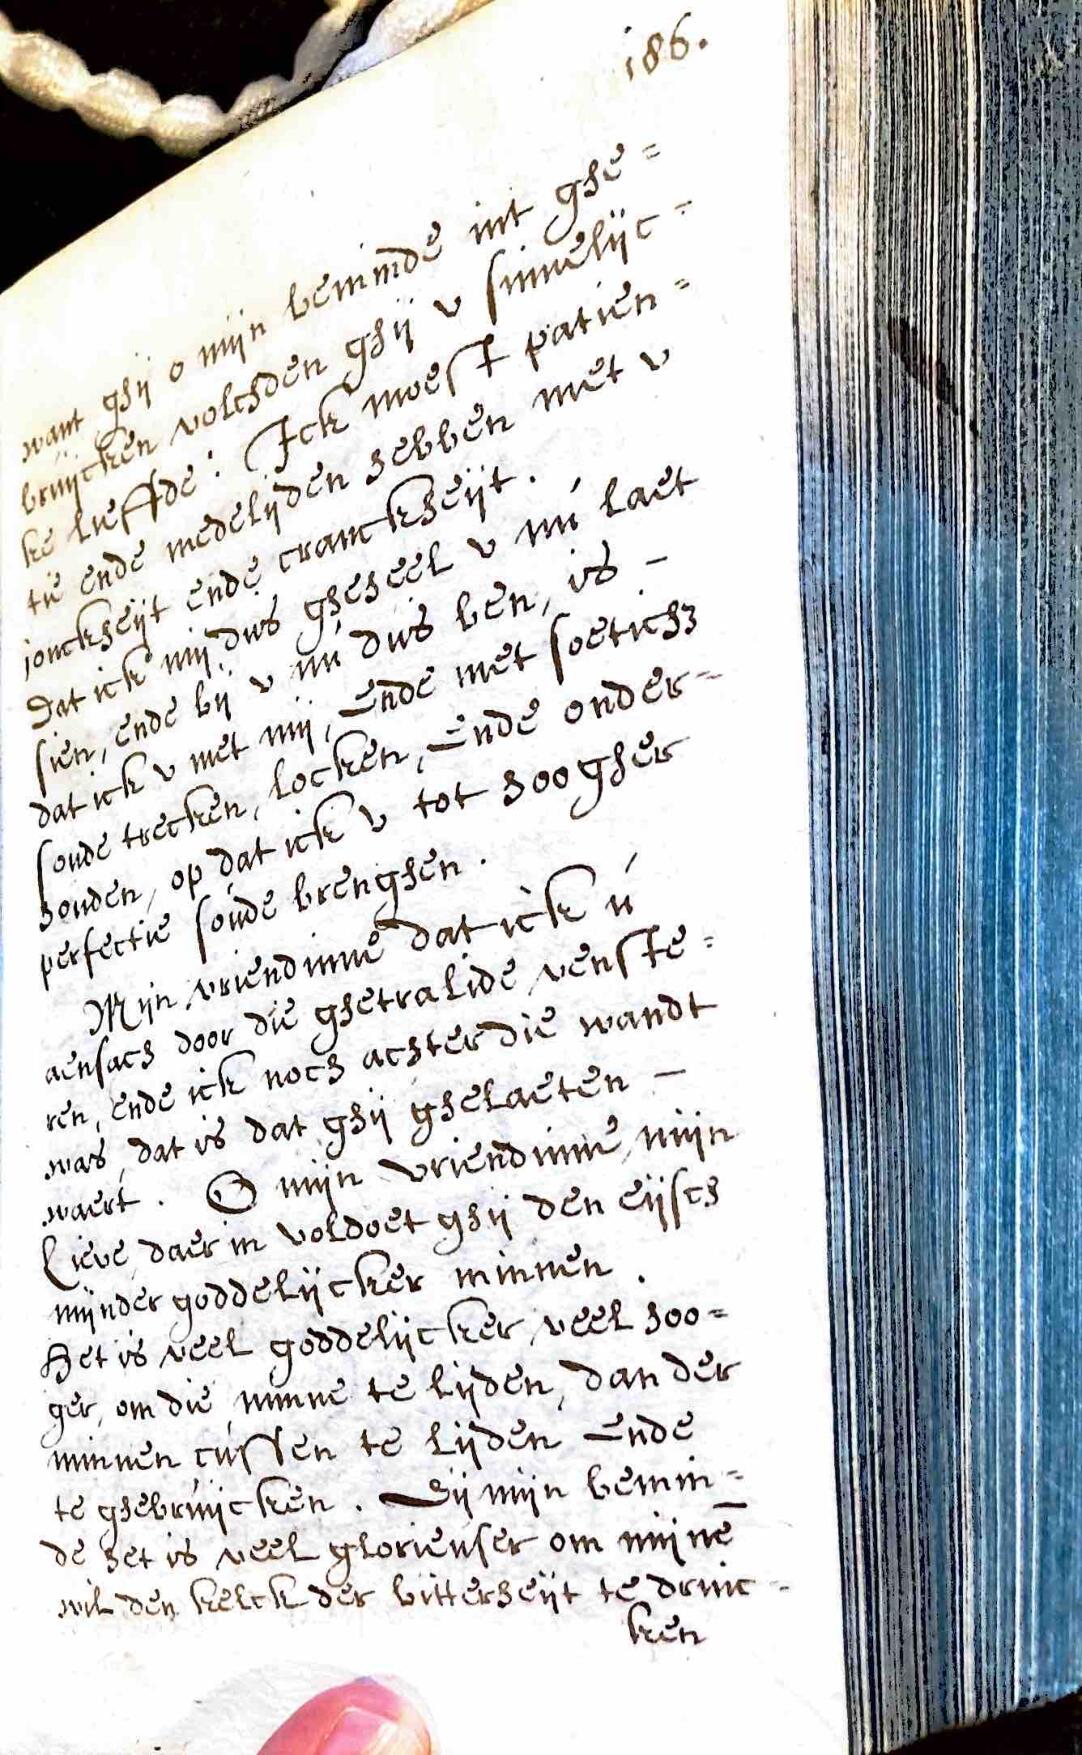 186.
want ghij o mijn beminde int ghe=
bruijcken volchden ghij v sinnelijc=
ke lieffde: Ick moest patien=
tie ende medelijden hebben met v
jonckheijt ende cranckheijt.
Dat ick mij dus gheheel v nú laet
sien, ende bij v nú dus ben, is –
dat ick v met mij, Ende met soetich3
soude trecken, locken, Ende onder-
houden, op dat ick v tot hoogher
perfectie soúde brenghen.
Mijn vriendinne dat ick ú
aensach door die ghetralide venste=
ren, ende ick noch achter die wandt
was, dat is dat ghij ghelaeten –
waert. O mijn vriendinne, mijn
Lieve, daer in voldoet ghij den eijsch
mijnder goddelijcker minnen.
Het is veel goddelijcker, veel hoo=
ger, om die minne te lijden, dan der
minnen cússen te lijden Ende
te ghebruijcken. Dij mijn bemin=
de het is veel glorieuser om mijnē
wil den kelck der bitterheijt te drinc-
ken